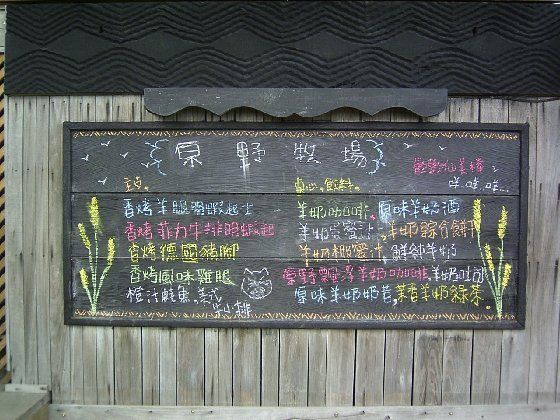 原野牧場
主食。
香烤羊腿明蝦起士
香烤菲力牛排明蝦起
香烤德國豬腳
香烤風味雞腿
橙汁鮭魚、美式
牛排
點心。飲料。
咩咩咩...
羊奶咖啡、原味羊奶酒
羊奶蜜汁、羊奶綜合餅
羊奶椰蜜汁、鮮羊奶
原野飄浮羊奶咖啡、羊奶吐司
原味羊奶奶昔、茉香羊奶綠茶。